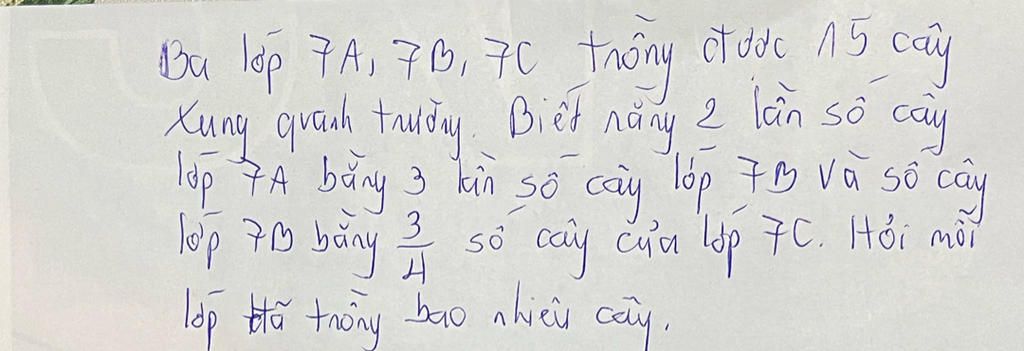 Ba lớp 7A, 7B, 7C trồng được 15 cây
xung quanh trường. Biết rằng 2 lần số cây
lớp 7A bằng 3 lần số cây lớp 7B và số cây
lớp 7B bằng 3/4 số cây của lớp 7C. Hỏi mỗi
lớp đã trồng bao nhiêu cây.